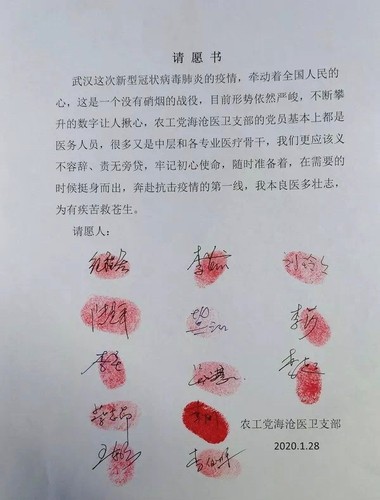 请愿书
武汉这次新型冠状病毒肺炎的疫情，牵动着全国人民的
心，这是一个没有硝烟的战役，目前形势依然严峻，不断攀
升的数字让人揪心，农工党海沧医卫支部的党员基本上都是
医务人员，很多又是中层和各专业医疗骨干，我们更应该义
不容辞、责无旁贷，牢记初心使命，随时准备着，在需要的
时候挺身而出，奔赴抗击疫情的第一线，我本良医多壮志，
为有疾苦救苍生。
请愿人：
农工党海沧医卫支部
2020.1.28